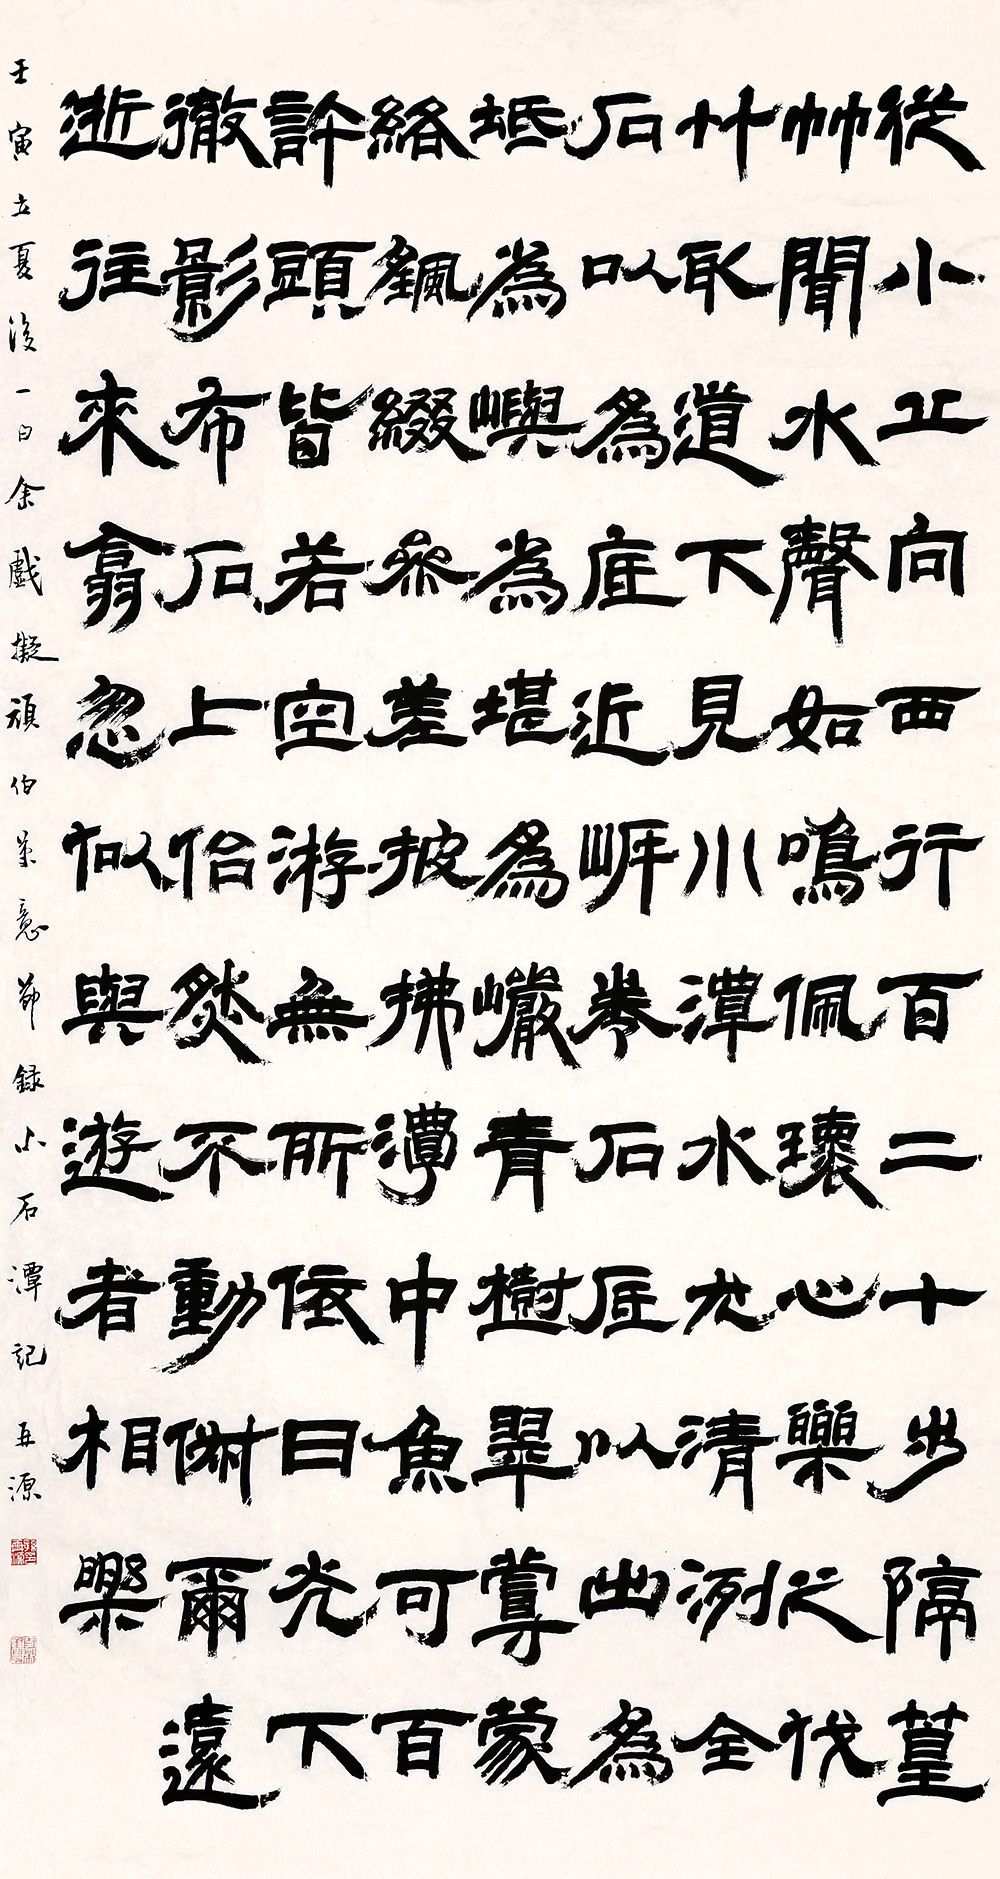 從小丘向西行百二十步隔篁
竹聞水聲如鳴佩環心樂之伐
竹取道下見小潭水尤清洌全
石以為底近岸卷石底以出為
坻為嶼為堪為巖青樹翠蔓蒙
絡颻綴參差披拂潭中魚可百
許頭皆若空游無所依日光下
徹影布石上佁然不動俶爾遠
逝往來翕忽似與遊者相樂
壬寅立夏後一日余戲擬頑伯筆意節錄小石潭記 源